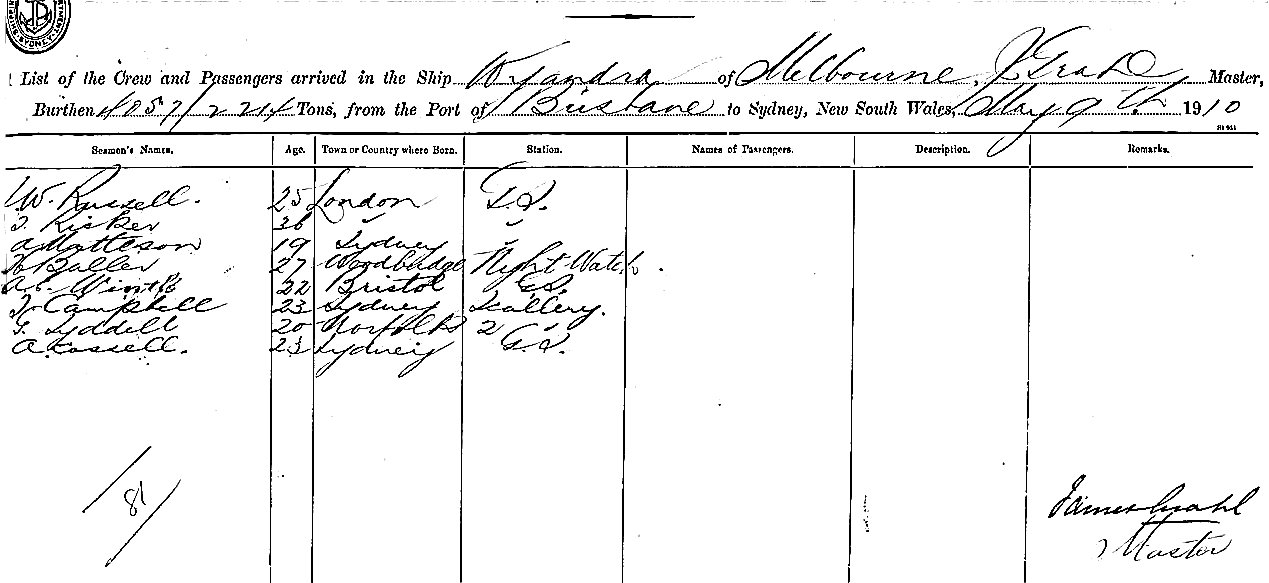 SYDNEY
List of the Crew and Passengers arrived in the Ship Wyandra of Melbourne, J Grahl Master,
Burthen 4057/2214 Tons, from the Port of Brisbane to Sydney, New South Wales, May 9th 1910
Seamen's Names. Age. Town or Country where Born. Station. Names of Passengers. Description. Remarks.
W. Russell. 25 London G.S.
T. Risker 36 " "
A Matteson 19 Sydney "
H Buller 27 Woodbridge Night Watch.
A.C. 22 Bristol G.S.
Campbell 23 Sydney Scullery.
G. Lyddell 20 Norfolk 2
A. Cassell. 23 Sydney G.S.
/81/
James Grahl
Master